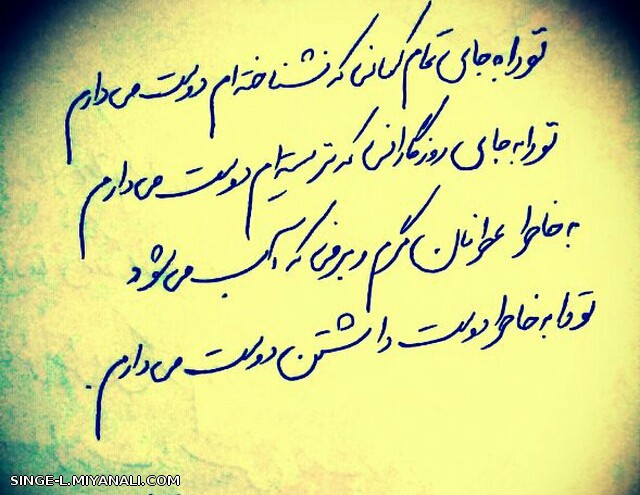 تو را به جای تمام کسانی که نشناخته ام دوست می دارم
تو را به جای روزگارانی که نزیسته ام دوست می دارم
به خاطر عطر نان گرم و برفی که آب می شود
تو را به خاطر دوست داشتن دوست می دارم.
SINGE-L.MIYANALI.COM